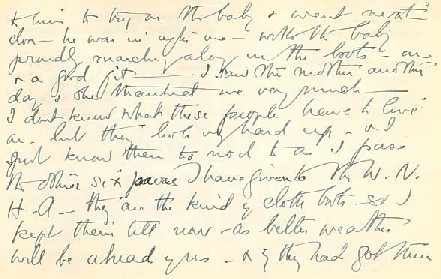 to him to try on the baby & went next
don - he was in again - with the baby
proudly marching along in the boots - an
& a good fit - I saw the mother another
day & she thanked me very much -
I dont know what these people have to live
on - but they look very hard up - & I
just know them to nod to as I pass
The other six pairs I have given to the W. V.
H - A - they are the kind of cloth boots so I
kept them till now - as better weather
will be ahead of us - & if they had got them